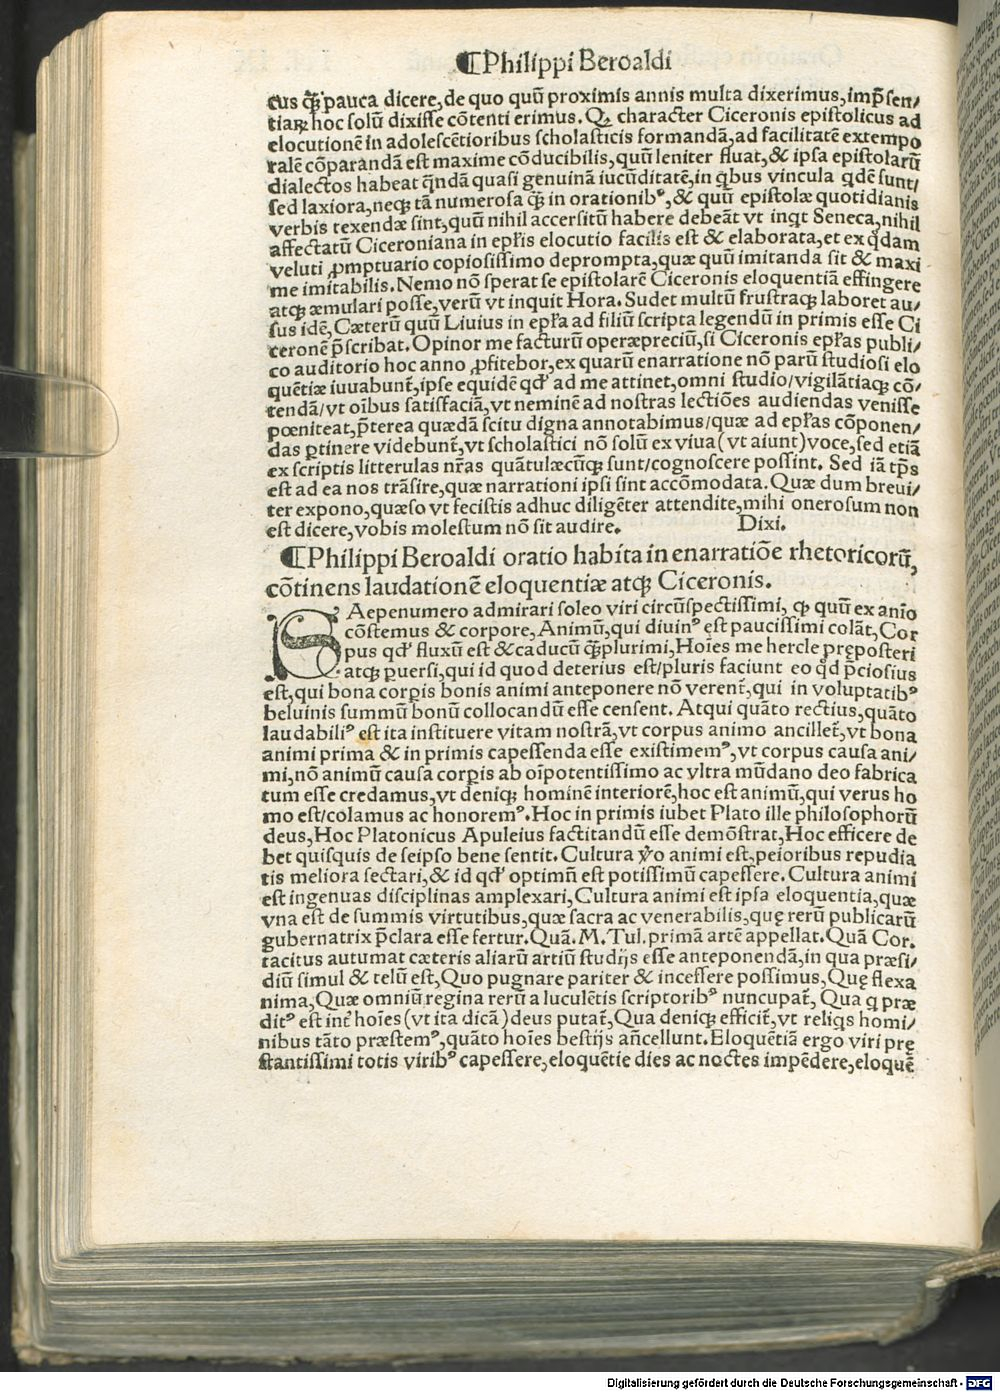 ¶Philippi Beroaldi
cus q̃ʒ pauca dicere, de quo quũ proximis annis multa dixerimus, imp̃sen/
tiaꝝ hoc solũ dixisse cõtenti erimus. Qꝫ character Ciceronis epistolicus ad
elocutionẽ in adolescẽtioribus scholasticis formandã, ad facilitatẽ extempo
ralẽ cõparandã est maxime cõducibilis, quũ leniter fluat, & ipsa epistolarũ
dialectos habeat q̃ndã quasi genuinã iucũditatẽ, in qͥbus vincula qͥdẽ sunt/
sed laxiora, neqꝫ tã numerosa q̃ʒ in orationibꝰ, & quũ epistolæ quotidianis
verbis texendæ sint, quũ nihil accersitũ habere debeãt vt inqͥt Seneca, nihil
affectatũ Ciceroniana in ep̃lis elocutio facilis est & elaborata, et ex qͦdam
veluti ꝓmptuario copiosissimo deprompta, quæ quũ imitanda sit & maxi
me imitabilis. Nemo nõ sperat se epistolarẽ Ciceronis eloquentiã effingere
atqꝫ æmulari posse, verũ vt inquit Hora. Sudet multũ frustraqꝫ laboret au/
sus idẽ, Cæterũ quũ Liuius in ep̃la ad filiũ scripta legendũ in primis esse Ci
ceronẽ p̃scribat. Opinor me facturũ operæpreciũ, si Ciceronis ep̃las publi/
co auditorio hoc anno ꝓfitebor, ex quarũ enarratione nõ parũ studiosi elo
quẽtiæ iuuabunt̃, ipse equidẽ qď ad me attinet, omni studio/vigilãtiaqꝫ cõ/
tendã/vt oĩbus satisfaciã, vt neminẽ ad nostras lectiões audiendas venisse
pœniteat, p̃terea quædã scitu digna annotabimus/quæ ad ep̃las cõponen/
das ꝑtinere videbunt̃, vt scholastici nõ solũ ex viua (vt aiunt) voce, sed etiã
ex scriptis litterulas nr̃as quãtulæcũqꝫ sunt/cognoscere possint. Sed iã tp̃s
est ad ea nos trãsire, quæ narrationi ipsi sint accõmodata. Quæ dum breui/
ter expono, quæso vt fecistis adhuc diligẽter attendite, mihi onerosum non
est dicere, vobis molestum nõ sit audire. Dixi.
¶Philippi Beroaldi oratio habita in enarratiõe rhetoricorũ,
cõtinens laudationẽ eloquentiæ atqꝫ Ciceronis.
SAepenumero admirari soleo viri circũspectissimi, qꝫ quũ ex anĩo
cõstemus & corpore, Animũ, qui diuinꝰ est paucissimi colãt, Cor
pus qď fluxũ est & caducũ q̃ʒplurimi, Hoĩes me hercle pręposteri
atqꝫ ꝑuersi, qui id quod deterius est/pluris faciunt eo qͦd p̃ciosius
est, qui bona corꝑis bonis animi anteponere nõ verent̃, qui in voluptatibꝰ
beluinis summũ bonũ collocandũ esse censent. Atqui quãto rectius, quãto
laudabiliꝰ est ita instituere vitam nostrã, vt corpus animo ancillet̃, vt bona
animi prima & in primis capessenda esse existimemꝰ, vt corpus causa ani/
mi, nõ animũ causa corꝑis ab oĩpotentissimo ac vltra mũdano deo fabrica
tum esse credamus, vt deniqꝫ hominẽ interiorẽ, hoc est animũ, qui verus ho
mo est/colamus ac honoremꝰ. Hoc in primis iubet Plato ille philosophorũ
deus, Hoc Platonicus Apuleius factitandũ esse demõstrat, Hoc efficere de
bet quisquis de seipso bene sentit. Cultura ṽo animi est, peioribus repudia
tis meliora sectari, & id qď optimũ est potissimũ capessere. Cultura animi
est ingenuas disciplinas amplexari, Cultura animi est ipsa eloquentia, quæ
vna est de summis virtutibus, quæ sacra ac venerabilis, quę rerũ publicarũ
gubernatrix p̃clara esse fertur. Quã. M. Tul. primã artẽ appellat. Quã Cor.
tacitus autumat cæteris aliarũ artiũ studijs esse anteponendã, in qua præsi/
diũ simul & telũ est, Quo pugnare pariter & incessere possimus, Quę flexa
nima, Quæ omniũ regina rerũ a luculẽtis scriptoribꝰ nuncupat̃, Qua q præ
ditꝰ est int̃ hoĩes (vt ita dicã) deus putat̃, Qua deniqꝫ efficit̃, vt reliqͥs homi/
nibus tãto præstemꝰ, quãto hoĩes bestijs añcellunt. Eloquẽtiã ergo viri prę
stantissimi totis viribꝰ capessere, eloquẽtie dies ac noctes impẽdere, eloquẽ
Digitalisierung gefördert durch die Deutsche Forschungsgemeinschaft - DFG